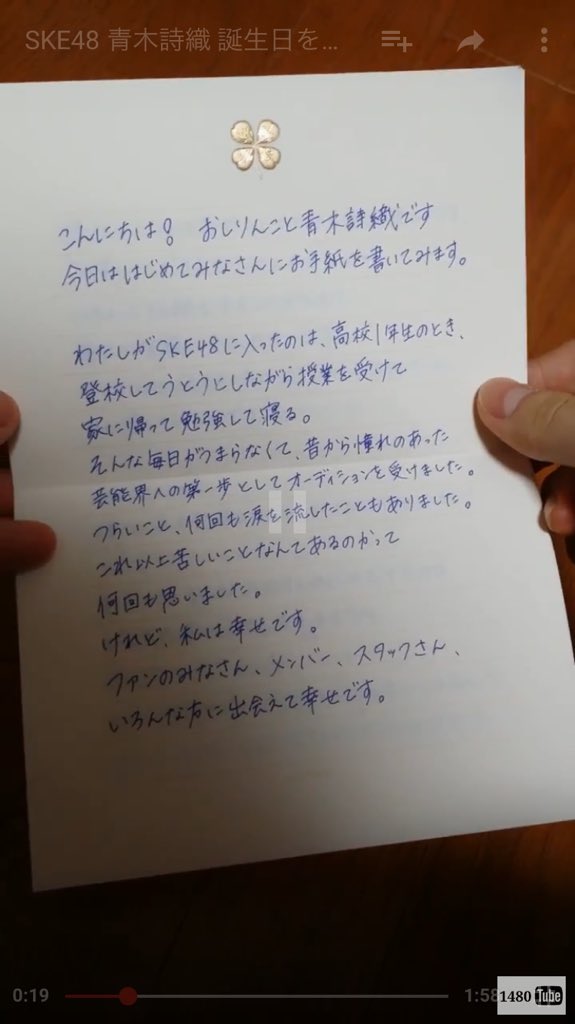 SKE48 青木詩織 誕生日を...
こんにちは! おしりんこと青木詩織です
今日ははじめてみなさんにお手紙を書いてみます。
わたしがSKE48に入ったのは、高校1年生のとき、
登校してうとうとしながら授業を受けて
家に帰って勉強して寝る。
そんな毎日がつまらなくて、昔から憧れのあった
芸能界への第一歩としてオーディションを受けました。
つらいこと、何回も涙を流したこともありました。
これ以上苦しいことなんてあるのかって
何回も思いました。
けれど、私は幸せです。
ファンのみなさん、メンバー、スタッフさん、
いろんな方に出会えて幸せです。
0:19
1:58
1480 Tube